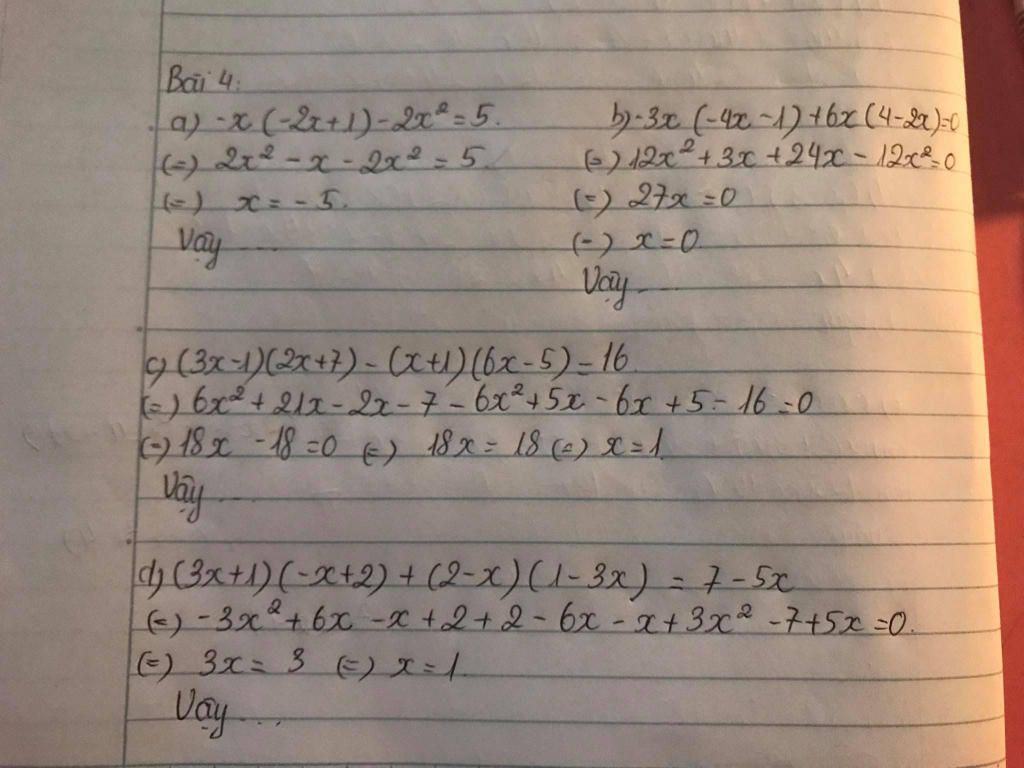 Bài 4:
a) -x(-2x+1)-2x²=5.
(=) 2x² - x - 2x² = 5.
(=) x = -5.
Vậy ....
b) -3x(-4x-1)+6x(4-2x)=0
(=) 12x²+3x+24x-12x²=0
(=) 27x=0
(=) x=0.
Vậy ....
c) (3x-1)(2x+7)-(x+1)(6x-5)=16.
(=) 6x²+21x-2x-7-6x²+5x-6x+5-16=0
(=) 18x -18=0 (=) 18x = 18 (=) x=1.
Vậy ....
d) (3x+1)(-x+2)+(2-x)(1-3x) = 7-5x
(=) -3x²+6x-x+2+2-6x-x+3x²-7+5x=0.
(=) 3x = 3 (=) x=1.
Vậy ....